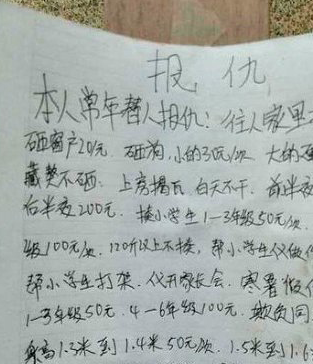 报仇
本人常年替人报仇：往人家里
砸窗户20/元. 砸狗,小的30元/次 大的
藏獒不砸. 上房揭瓦 白天不干. 前半夜
后半夜200元. 揍小学生1-3年级50元/次.
级100元/次. 120斤以上不揍, 帮小学生仪做作
帮小学生打架. 仪开家长会. 寒暑假作
1-3年级50元. 4-6年级100元. 欺负同
身高1.3米到1.4米50元/次. 1.5米到1.6